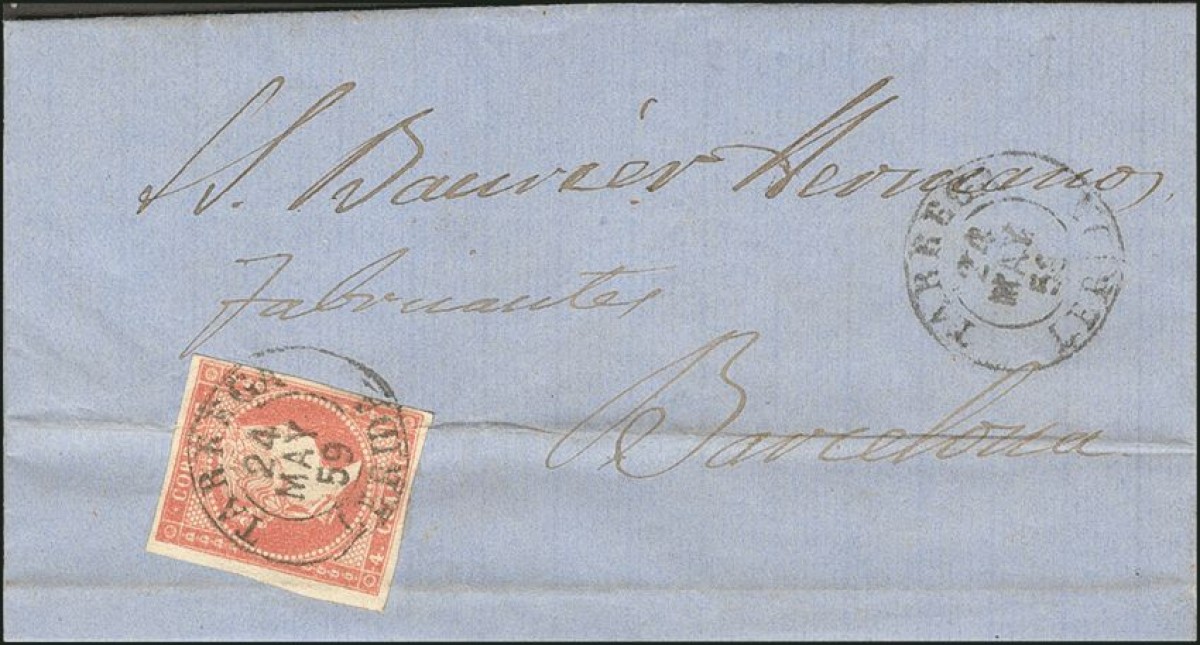 S. Bauvier Hermanos
Fabricantes
Barcelona
TARREGA
24
MAY
59
LERIDA
TARREGA
24
MAY
59
LERIDA
CO
4 C